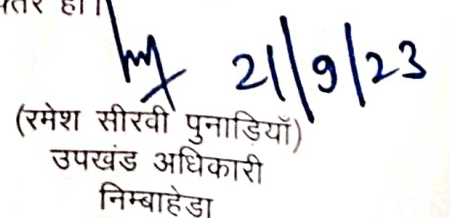 हो।
21/9/23
(रमेश सीरवी पुनाड़ियाॅं)
उपखंड अधिकारी
निम्बाहेडा